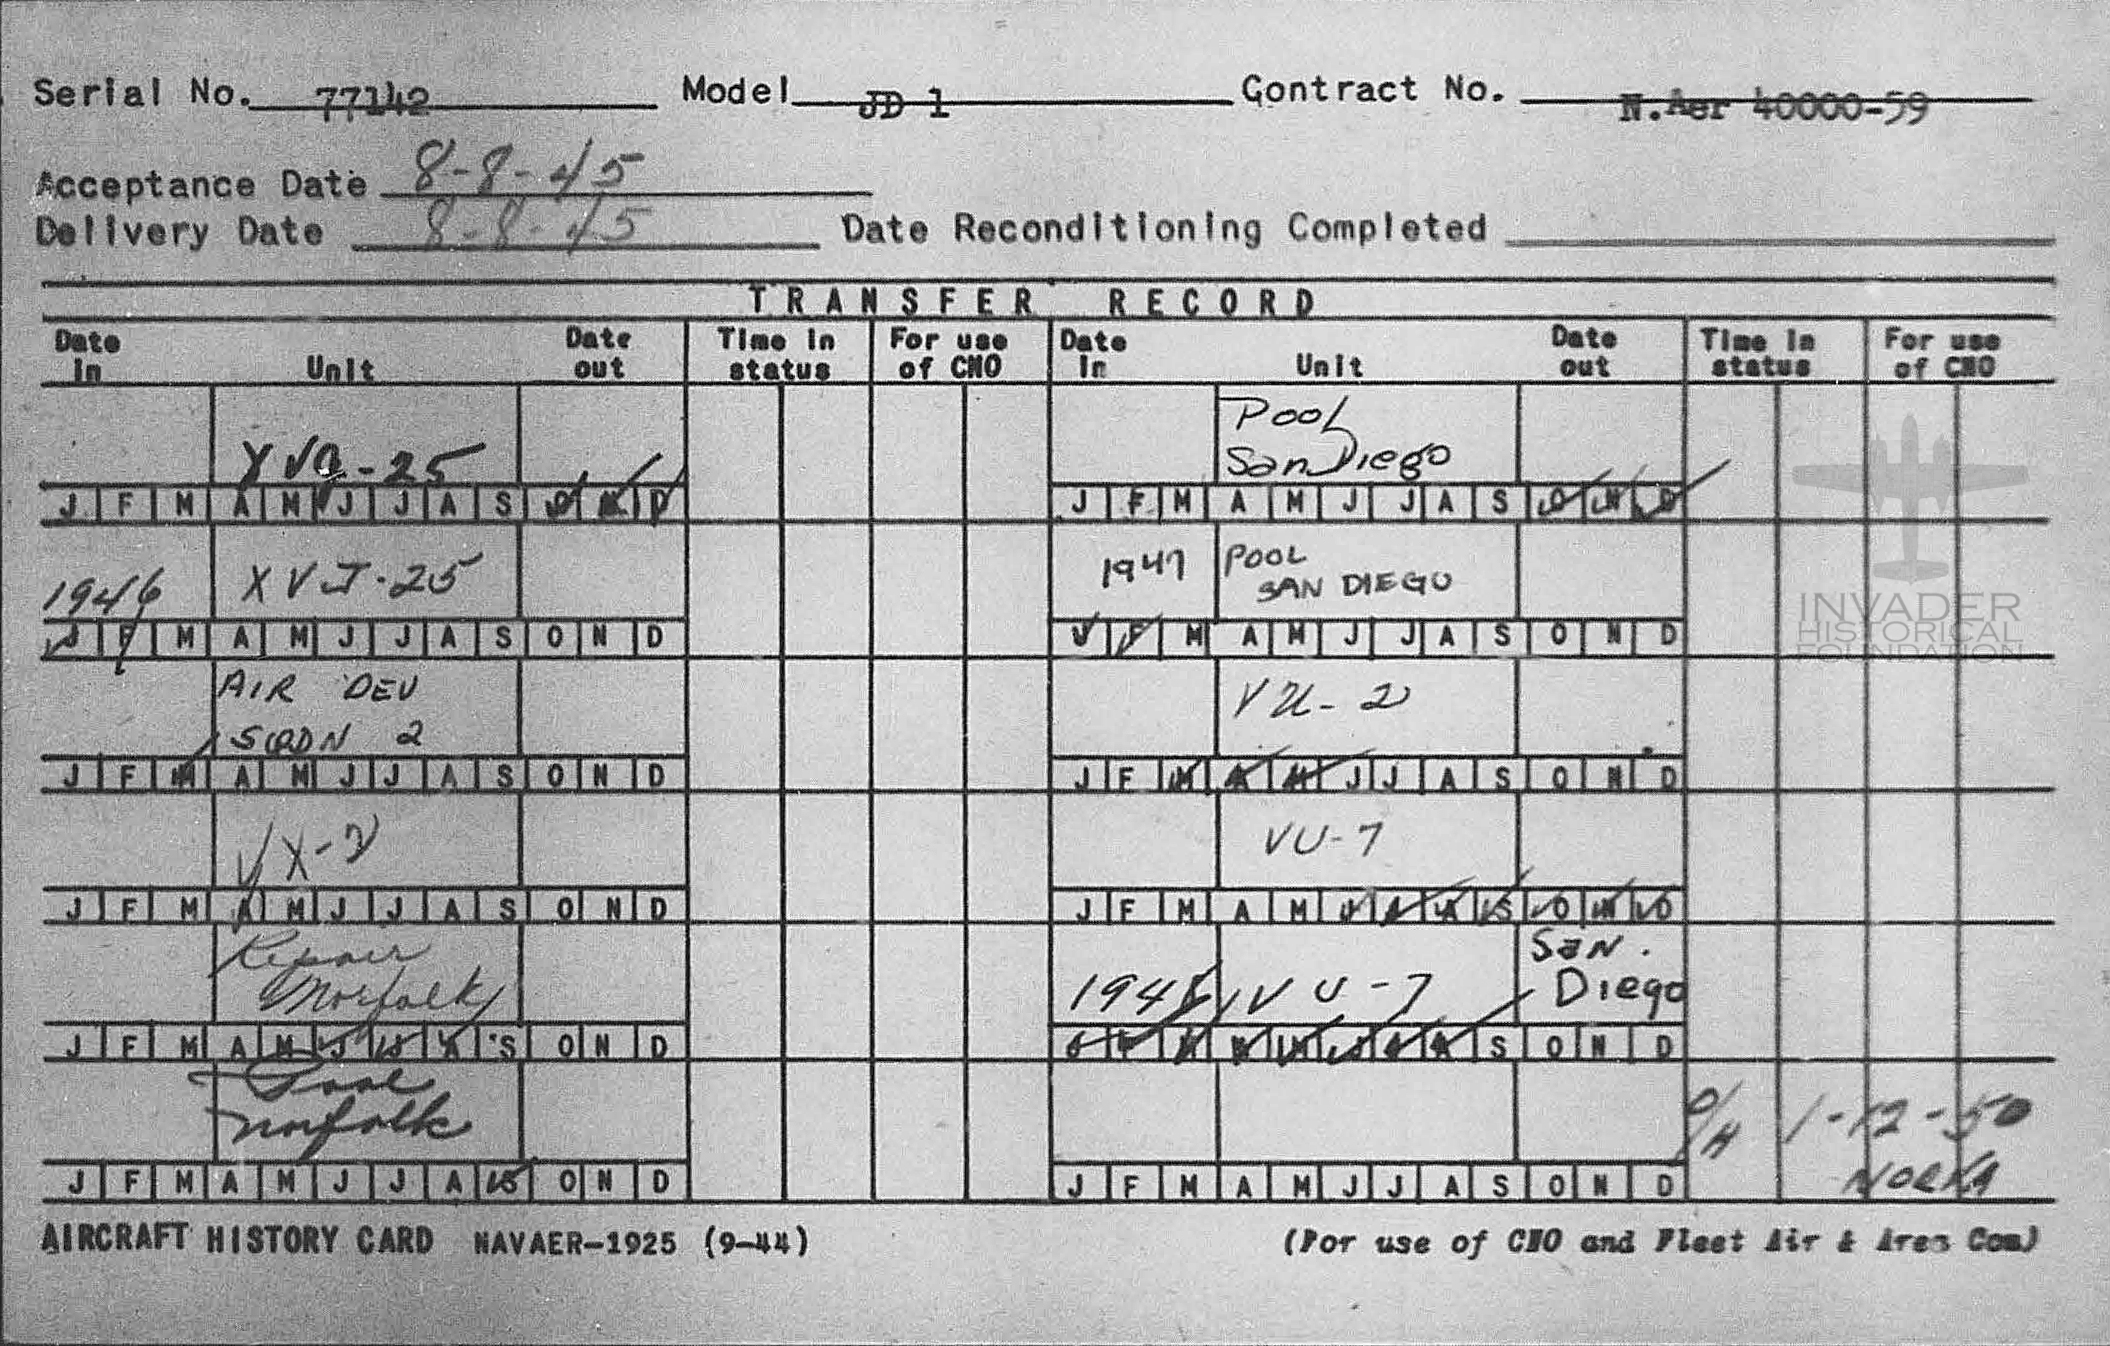 Serial No. 77142 Model JD 1 Contract No. N.Aer 40000-59
Acceptance Date 8-8-45
Delivery Date 8-8-45 Date Reconditioning Completed
TRANSFER RECORD
Date in Unit Date out Time in status For use of CNO Date in Unit Date out Time in status For use of CNO
XVJ-25
J F M A M J J A S O N D
1946 XVJ-25
J F M A M J J A S O N D
AIR DEV
SQDN 2
J F M A M J J A S O N D
VX-2
J F M A M J J A S O N D
Repair
Norfolk
J F M A M J J A S O N D
Pool
Norfolk
J F M A M J J A S O N D
Pool
San Diego
J F M A M J J A S O N D
1947 POOL
SAN DIEGO
J F M A M J J A S O N D
VU-2
J F M A M J J A S O N D
VU-7
J F M A M J J A S O N D
VU-7 San Diego
J F M A M J J A S O N D
O/H 1-12-50
NORVA
J F M A M J J A S O N D
AIRCRAFT HISTORY CARD NAVAER-1925 (9-44) (For use of CNO and Fleet Air & Area Com)
INVADER
HISTORICAL
FOUNDATION